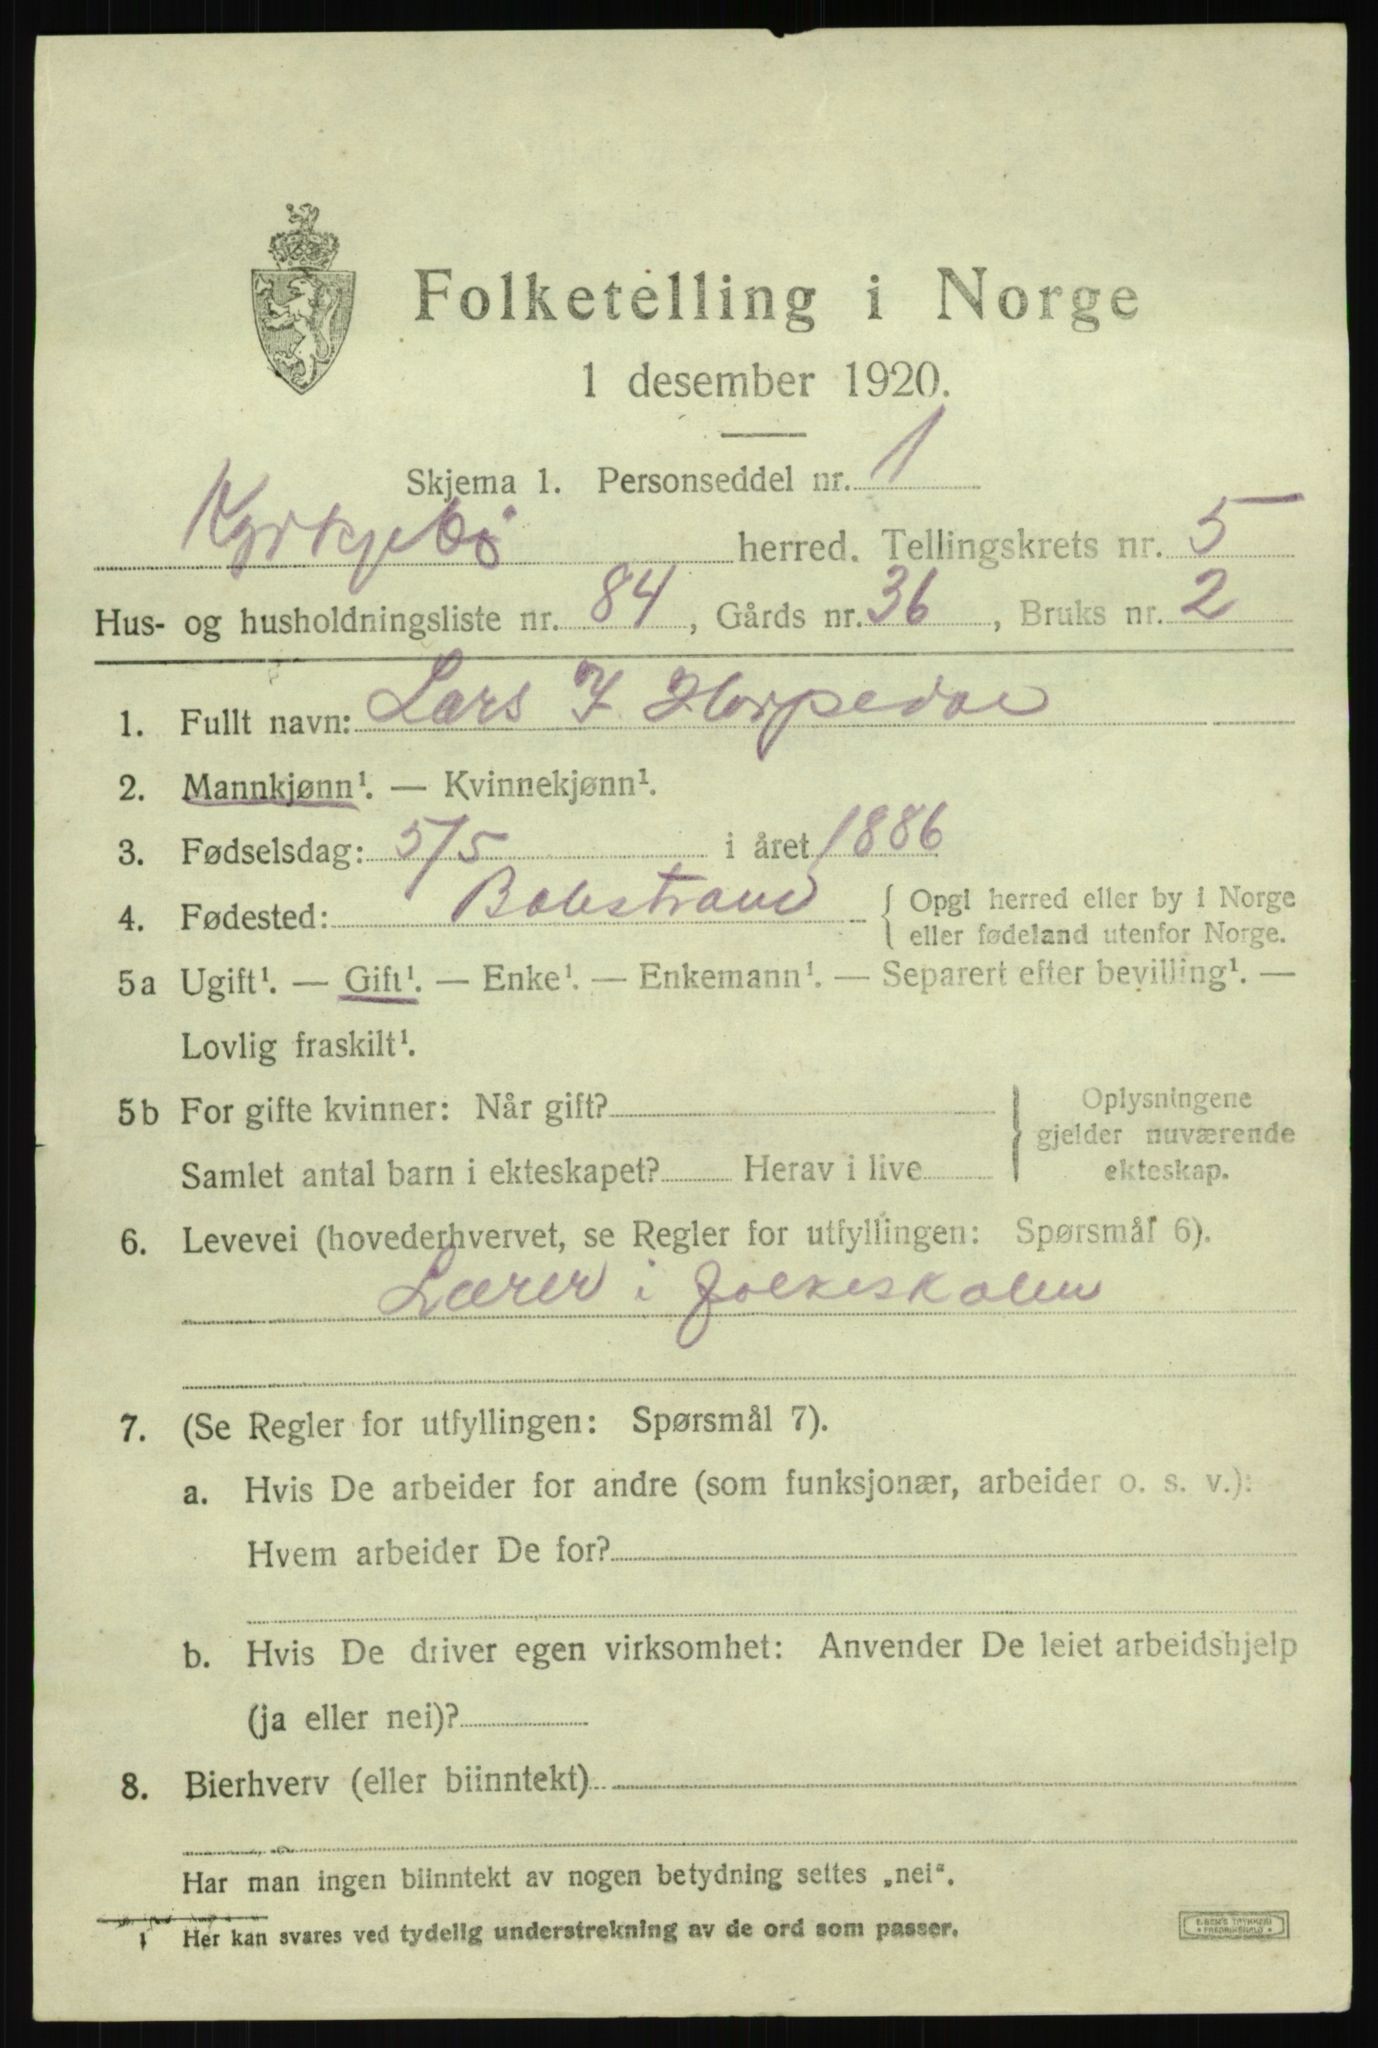 Folketelling i Norge
1 desember 1920.
Skjema 1. Personseddel nr. 1
Kyrkjebø herred. Tellingskrets nr. 5
Hus- og husholdningsliste nr. 84, Gårds nr. 36, Bruks nr. 2
1. Fullt navn: Lars I Horpedal
2. Mannkjønn¹. — Kvinnekjønn¹.
3. Fødselsdag: 5/5 i året 1886
4. Fødested: Balestrand { Opgi herred eller by i Norge
eller fødeland utenfor Norge.
5a Ugift¹. — Gift¹. — Enke¹. — Enkemann¹. — Separert efter bevilling¹. —
Lovlig fraskilt¹.
5b For gifte kvinner: Når gift? } Oplysningene
gjelder nuværende
Samlet antal barn i ekteskapet? Herav i live ekteskap.
6. Levevei (hovederhvervet, se Regler for utfyllingen: Spørsmål 6).
Lærer i folkeskolen
7. (Se Regler for utfyllingen: Spørsmål 7).
a. Hvis De arbeider for andre (som funksjonær, arbeider o. s. v.):
Hvem arbeider De for?
b. Hvis De driver egen virksomhet: Anvender De leiet arbeidshjelp
(ja eller nei)?
8. Bierhverv (eller biinntekt)
Har man ingen biinntekt av nogen betydning settes „nei“.
1 Her kan svares ved tydelig understrekning av de ord som passer.